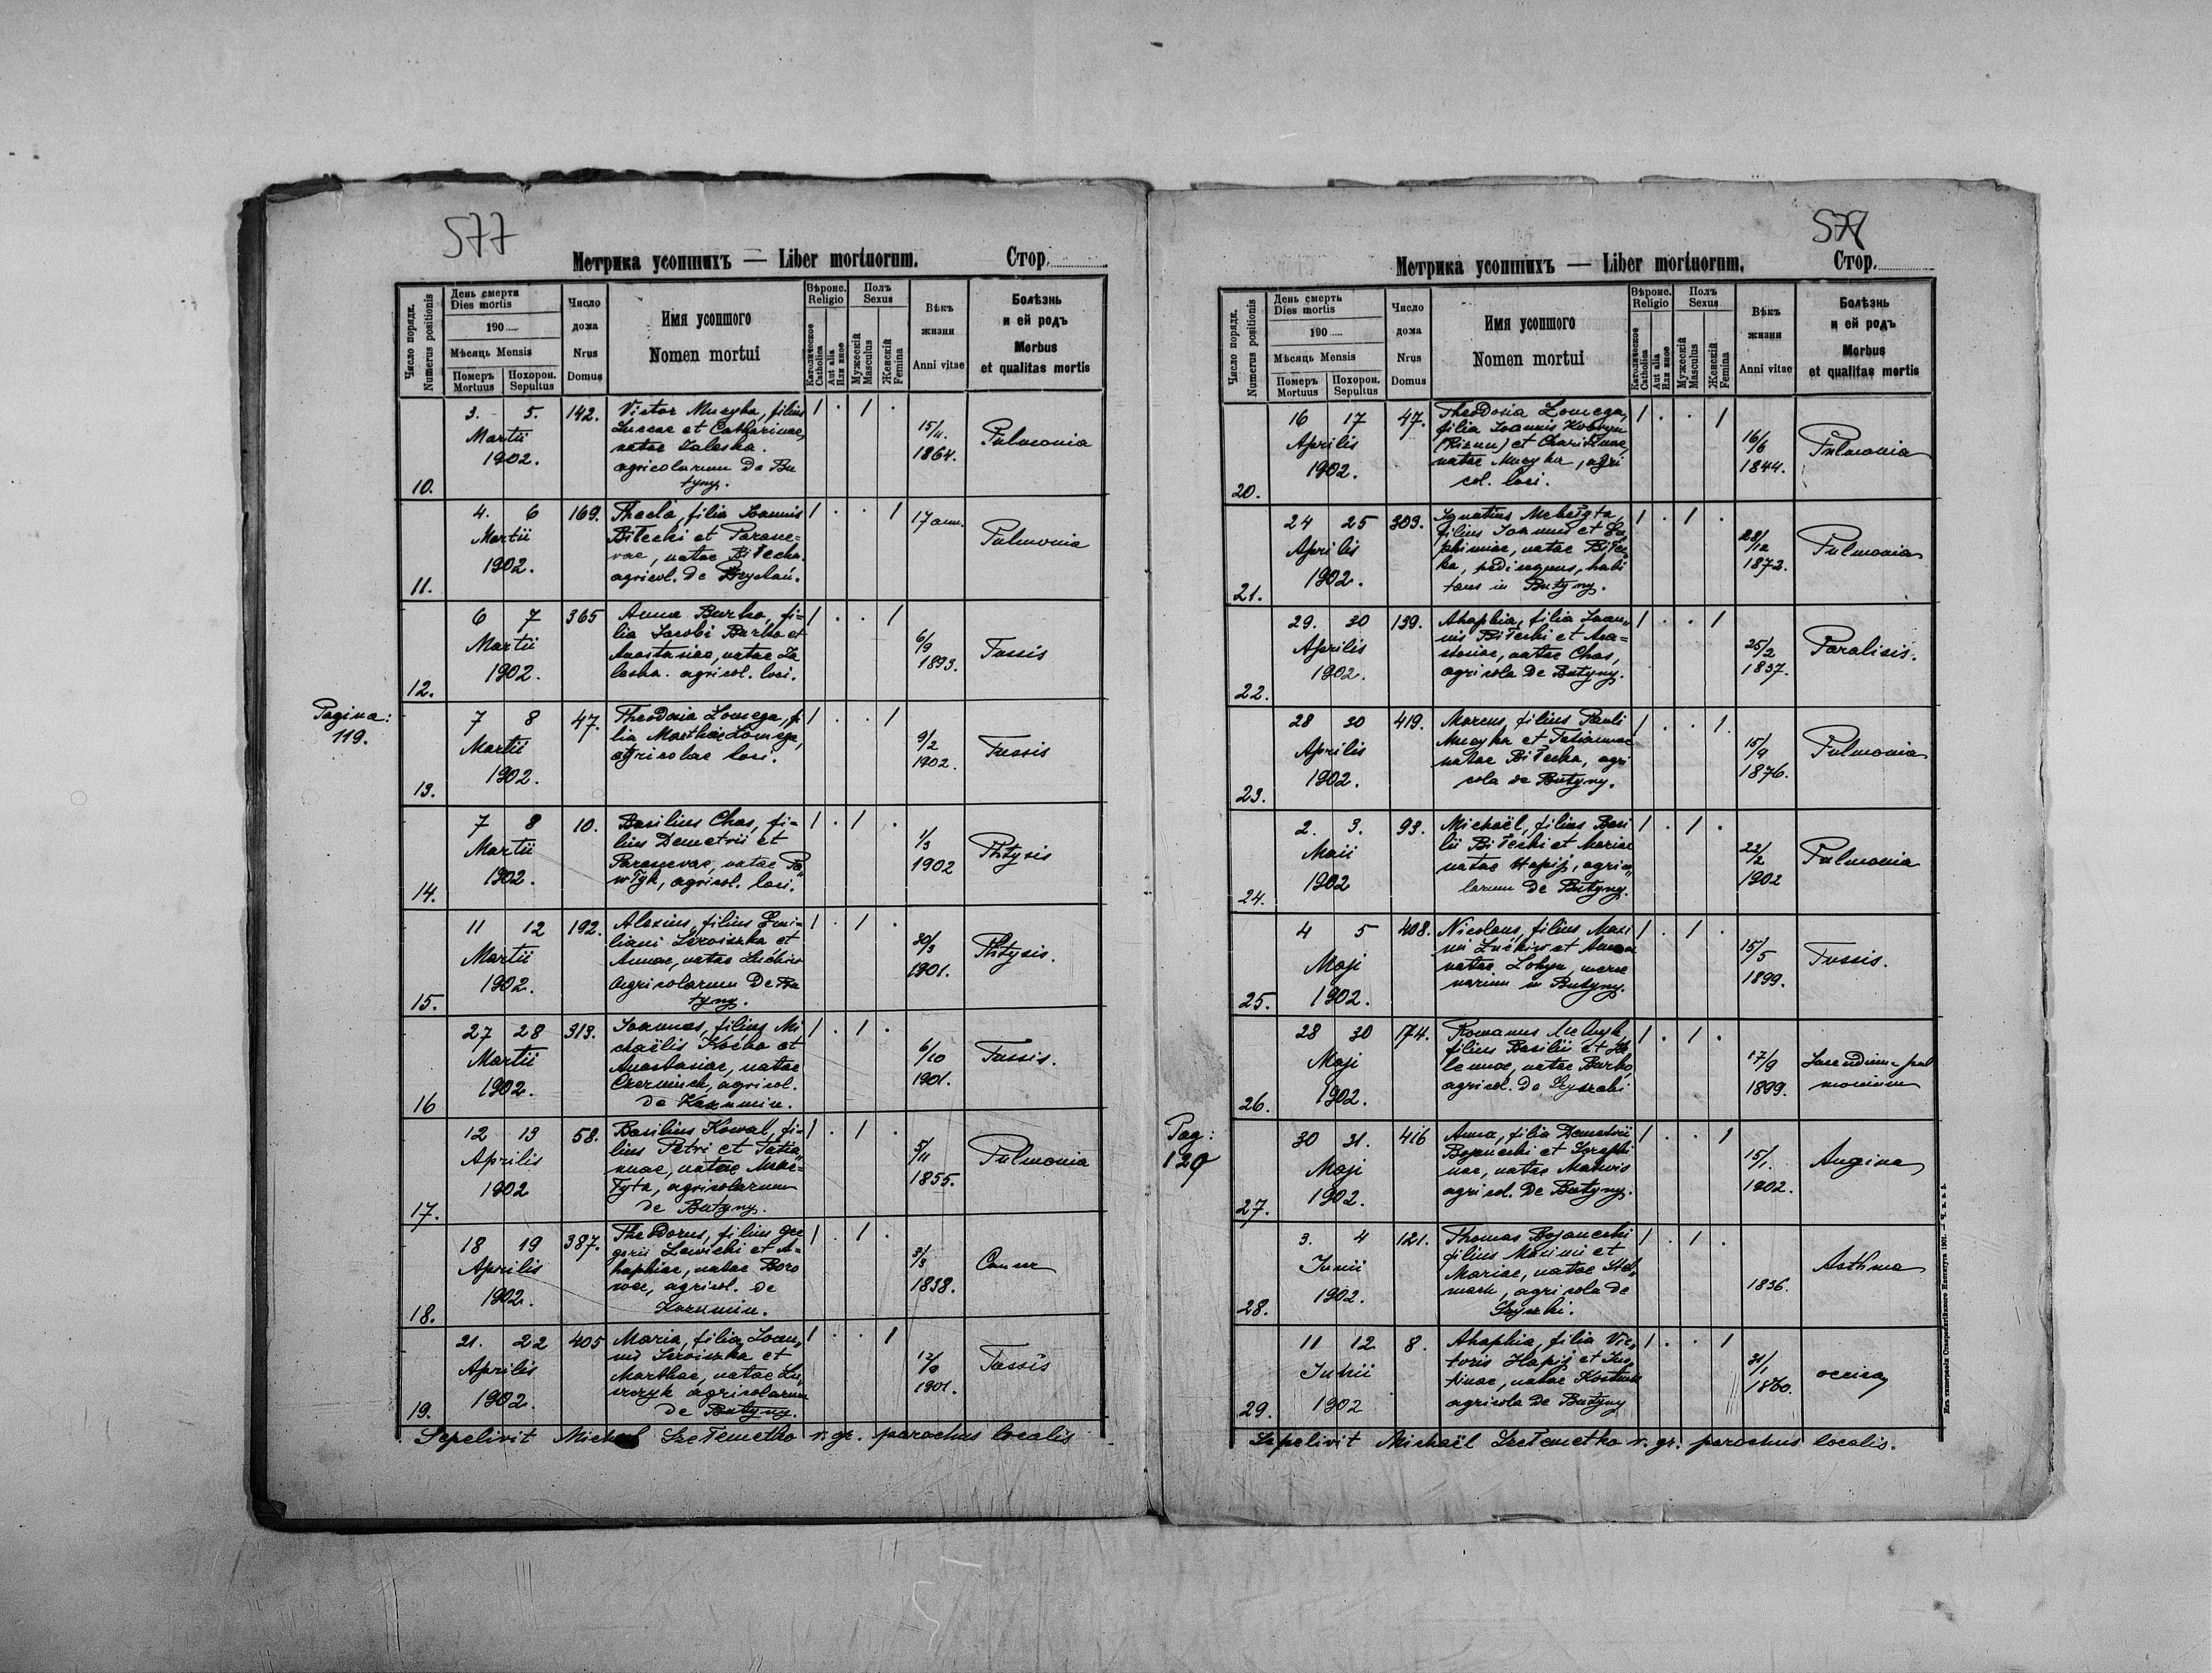 577
Метрика усопшихъ — Liber mortuorum.
Стор.
Число порядк.
Numerus positionis
День смерти
Dies mortis
190
Мѣсяць Mensis
Померъ
Mortuus
Похорон.
Sepultus
Число
дома
Nrus
Domus
Имя усопшого
Nomen mortui
Вѣроис.
Religio
Католическое
Catholica
Aut alia
Или иное
Полъ
Sexus
Мужескій
Masculus
Женскій
Femina
Вѣкъ
жизни
Anni vitae
Болѣзнь
и ей родъ
Morbus
et qualitas mortis
10.
3. 5.
Martii
1902.
142.
Victor Muzyka, filius
Luccae et Catharinae,
natae Zaleska.
agricolarum de Bu
tyny.
1 . 1 .
15/11.
1864.
Pulmonia
11.
4. 6
Martii
1902.
169.
Thecla, filia Ioannis
Biłecki et Parasce-
vae, natae Biłecka.
agricol. de
1 . . 1
17 ann.
Pulmonia
12.
6 7
Martii
1902.
365
Anna Burko, fi=
lia Iacobi Burko et
Anastasiae, natae Za
leska. agricol. loci.
1 . . 1
6/9
1893.
Tussis
Pagina:
119.
13.
7 8
Martii
1902.
47.
Theodosia Łomega, fi
lia Marthae Łomega,
agricolae loci.
1 . . 1
9/2
1902.
Tussis
14.
7 8
Martii
1902.
10.
Basilius Chas, fi=
lius Demetrii et
Parascevae, natae Pa
włyk, agricol. loci.
1 . 1 .
1/3
1902
Phtysis
15.
11 12
Martii
1902.
192.
Alexius, filius Emi=
liani Seroiszka et
Annae, natae Łućkiw
agricolarum de Bu
tyny.
1 . 1 .
30/3
1901.
Phtysis.
16
27 28
Martii
1902.
313.
Ioannes, filius Mi
chaëlis Koćko et
Anastasiae, natae
agricol.
de
1 . 1 .
6/10
1901.
Tussis.
17.
12 13
Aprilis
1902
58.
Basilius Kowal, fi=
lius Petri et Tatia,,
nnae, natae
agricolarum
de Butyny.
1 . 1 .
5/11
1855.
Pulmonia
18.
18 19
Aprilis
1902.
387.
Theodorus, filius Gre
gorii Lewicki et A=
haphiae, natae Boro
wa, agricol. de
1 . 1 .
3/3
1838.
Cancer
19.
21. 22
Aprilis
1902.
405
Maria, filia Ioan,,
nis Seroiszka et
Marthae, natae
agricolarum
de Butyny.
1 . . 1
12/9
1901.
Tussis
Sepelivit Michael Szełemetko r. gr. parochus localis
578
Метрика усопшихъ — Liber mortuorum.
Стор.
Число порядк.
Numerus positionis
День смерть
Dies mortis
190
Мѣсяць Mensis
Померъ
Mortuus
Похорон.
Sepultus
Число
дома
Nrus
Domus
Имя усопшого
Nomen mortui
Вѣроис.
Religio
Католическое
Catholica
Aut alia
Или иное
Полъ
Sexus
Мужескій
Masculus
Женскій
Femina
Вѣкъ
жизни
Anni vitae
Болѣзнь
и ей родъ
Morbus
et qualitas mortis
20.
16 17
Aprilis
1902.
47.
Theodosia Łomega,
filia Ioannis Kobryn
et
natae Muzyka, agri
col. loci.
1 . . 1
16/6
1844.
Pulmonia
21.
24 25
Aprilis
1902.
303.
Ignatius
filius Ioannis et Eu,,
phimiae, natae Biłec,,
ka, pedisequus, habi
tans in Butyny.
1 . 1 .
28/12
1872.
Pulmonia
22.
29. 30
Aprilis
1902.
139.
Ahaphia, filia Ioan,,
nis Biłecki et Ana=
stasiae, natae Chas,
agricola de Butyny.
1 . . 1
25/2
1837.
Paralisis.
23.
28 30
Aprilis
1902.
419.
Marcus, filius Pauli
Muzyka et Tatiannae
natae Biłecka, agri
cola de Butyny.
1 . . 1
15/4
1876.
Pulmonia
24.
2. 3.
Maii
1902
93.
Michaël, filius Basi
lii Biłecki et Mariae
natae Hapij, agrico,,
larum de Butyny.
1 . 1 .
22/2
1902
Pulmonia
25.
4 5
Maji
1902.
408.
Nicolaus, filius Maxi
mi Łućkiw et Annae
natae merce
narium in Butyny.
1 . 1 .
15/5
1899.
Tussis.
26.
28 30
Maji
1902.
174.
Romanus Melnyk
filius Basilii et He
lenae, natae Burko,
agricol. de
1 . 1 .
17/9
1899.
Incendium pul
monium
Pag:
120
27.
30 31.
Maji
1902.
416
Anna, filia Demetrii
Bojanecki et Seraphi
nae, natae Matwis
agricol. de Butyny.
1 . . 1
15/1.
1902.
Angina
28.
3. 4
Junii
1902.
121.
Thomas Bojanecki
filius Maximi et
Mariae, natae Stel,,
mach, agricola de
1 . 1 .
1836.
Asthma
29.
11 12
Junii
1902
8.
Ahaphia, filia Vic,,
toris Hapij et Ius,,
tinae, natae
agricola de Butyny
1 . . 1
31/1
1860.
occisa
Sepelivit Michaël Szełemetko r. gr. parochus localis.
Изъ типографіи Ставропигійского Института 1901. — Ч. в. 5.